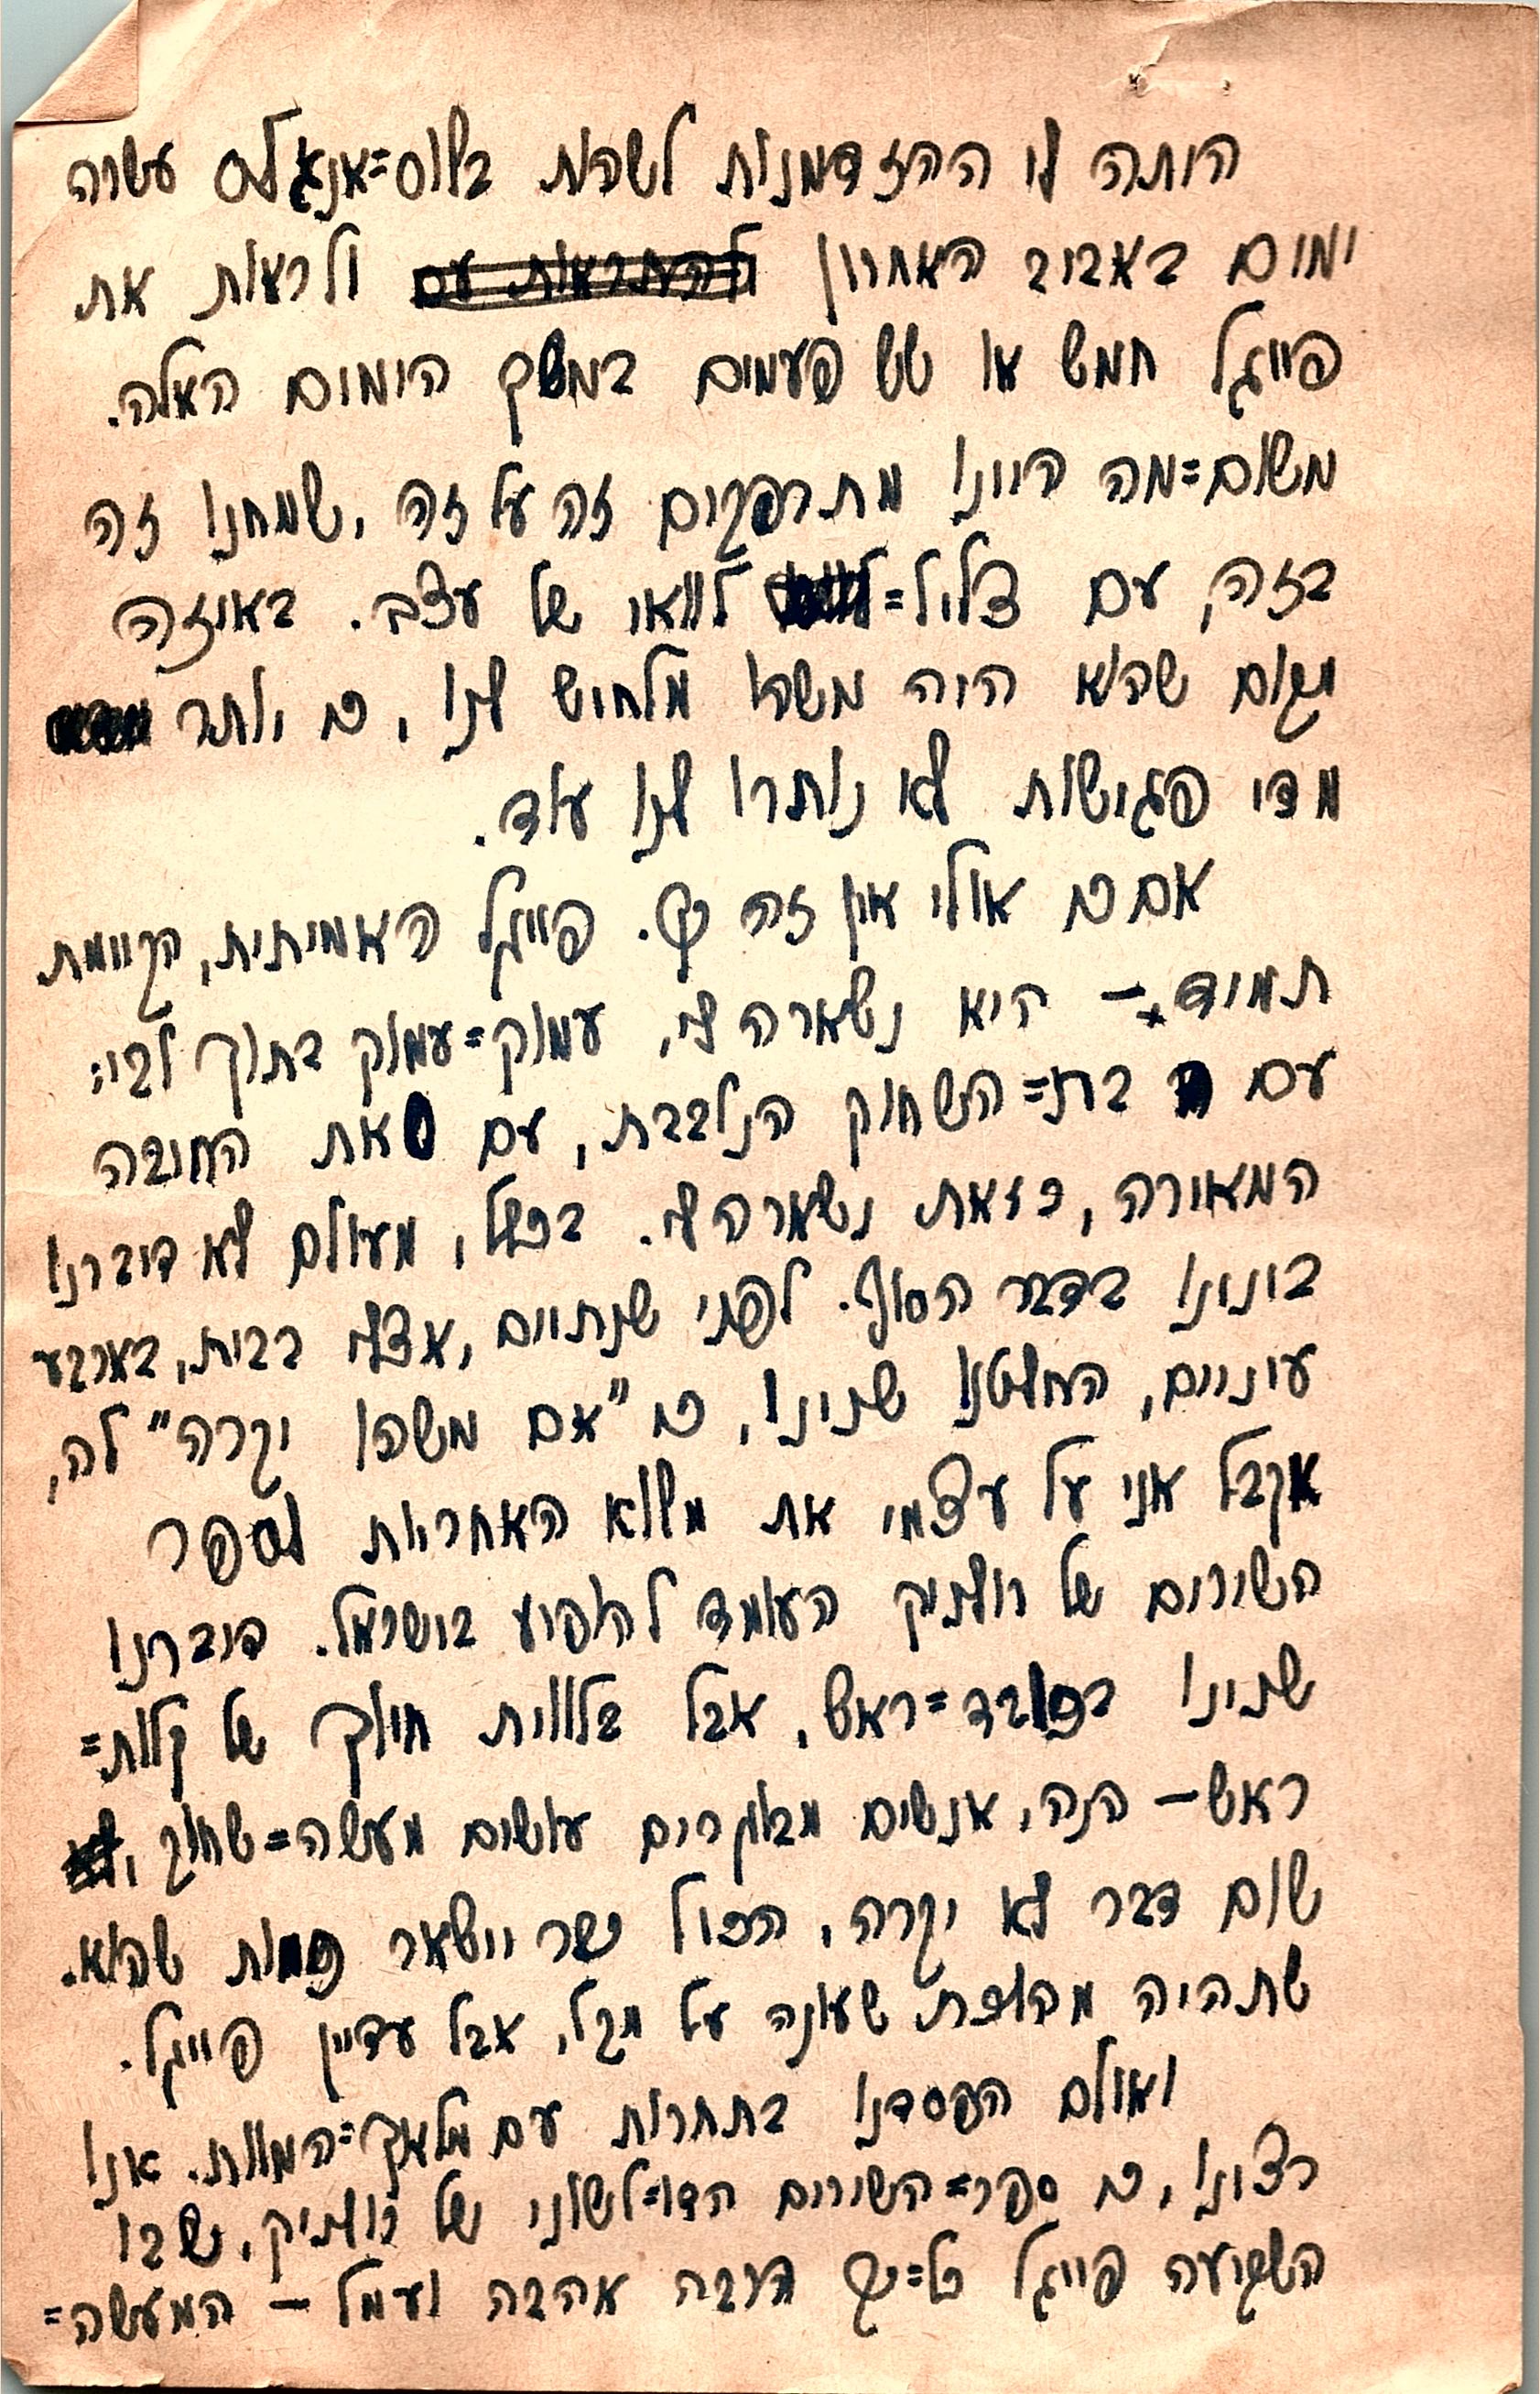 היתה לי ההזדמנות לשהות בלוס=אנג'לס עשרה
ימים באביב האחרון להתראות עם ולראות את
פייגל חמש או שש פעמים במשך הימים האלה.
משום=מה היינו מתרפקים זה על זה, שמחנו זה
בזה, עם צליל= לוואי של עצב. באיזה
מקום שהוא היה משהו מלחיש לנו, כי יותר
מדי פגישות לא נותרו לנו עוד.
אם כי אולי אין זה כך. פייגל האמיתית, הקיימת
תמיד – היא נשארה לי, עמוק=עמוק בתוך לבי:
עם בת=השחוק הנלבבת, עם את החיבה
המאורה, כזאת נשארה לי. בכלל, מעולם לא דיברנו
בינינו בדבר הסוף. לפני שנתיים, אצלי בבית, בארבע
עיניים, החלטנו שנינו, כי "אם משהו יקרה" לה,
אקבל אני על עצמי את מלוא האחריות לספר
השירים של רולניק העומד להופיע בישראל. דיברנו
שנינו בכובד=ראש, אבל בלווית חיוך של קלות=
ראש – הנה, אנשים מבוגרים עושים מעשה=שחוק,
שום דבר לא יקרה, הכול כשר ויישאר כמות שהוא.
שתהיה מהלכת שעונה על מקל, אבל עדיין פייגל.
ואולם הפסדנו בתחרות עם מלאך=המוות. אנו
רצינו, כי ספר=השירים הדו=לשוני של רולניק, שבו
השקיעה פייגל כל=כך הרבה אהבה ועמל – המעשה=